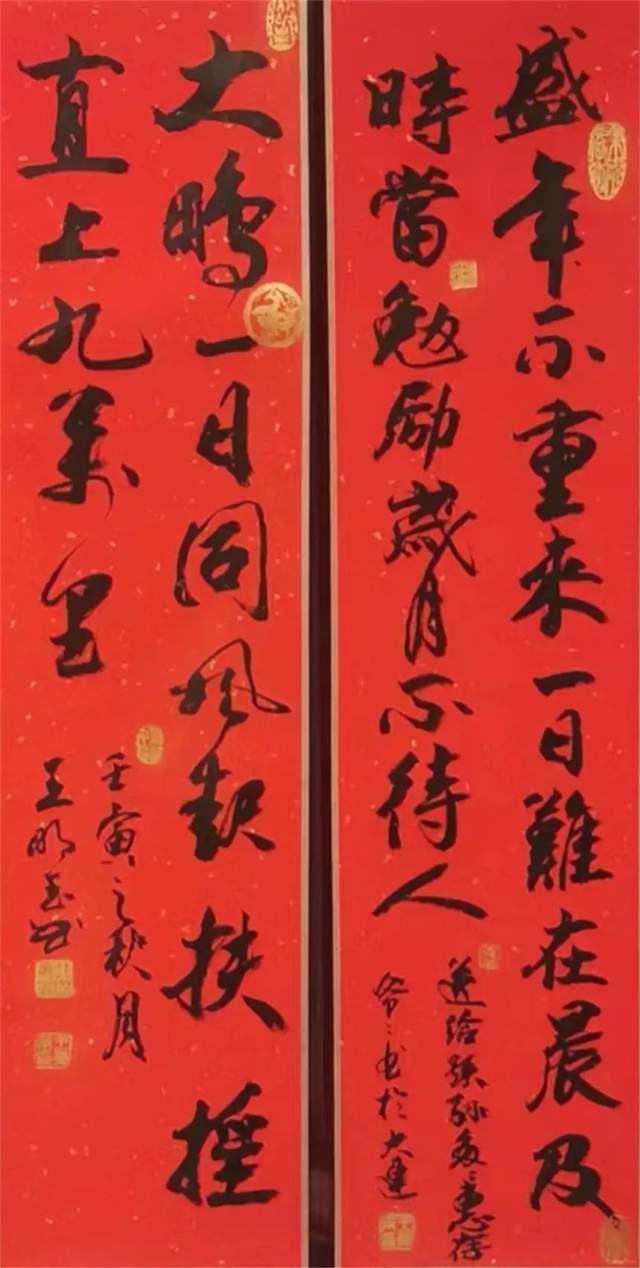 盛年不重来一日難在晨及
時當勉励歲月不待人
送给孫多多惠存
爷爷书於大連
大鵬一日同风起扶摇
直上九萬里
壬寅之秋月
王明玉书